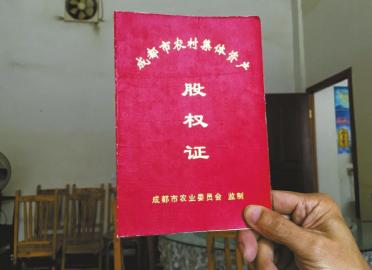 成都市农村集体资产
股权证
成都市农业委员会 监制